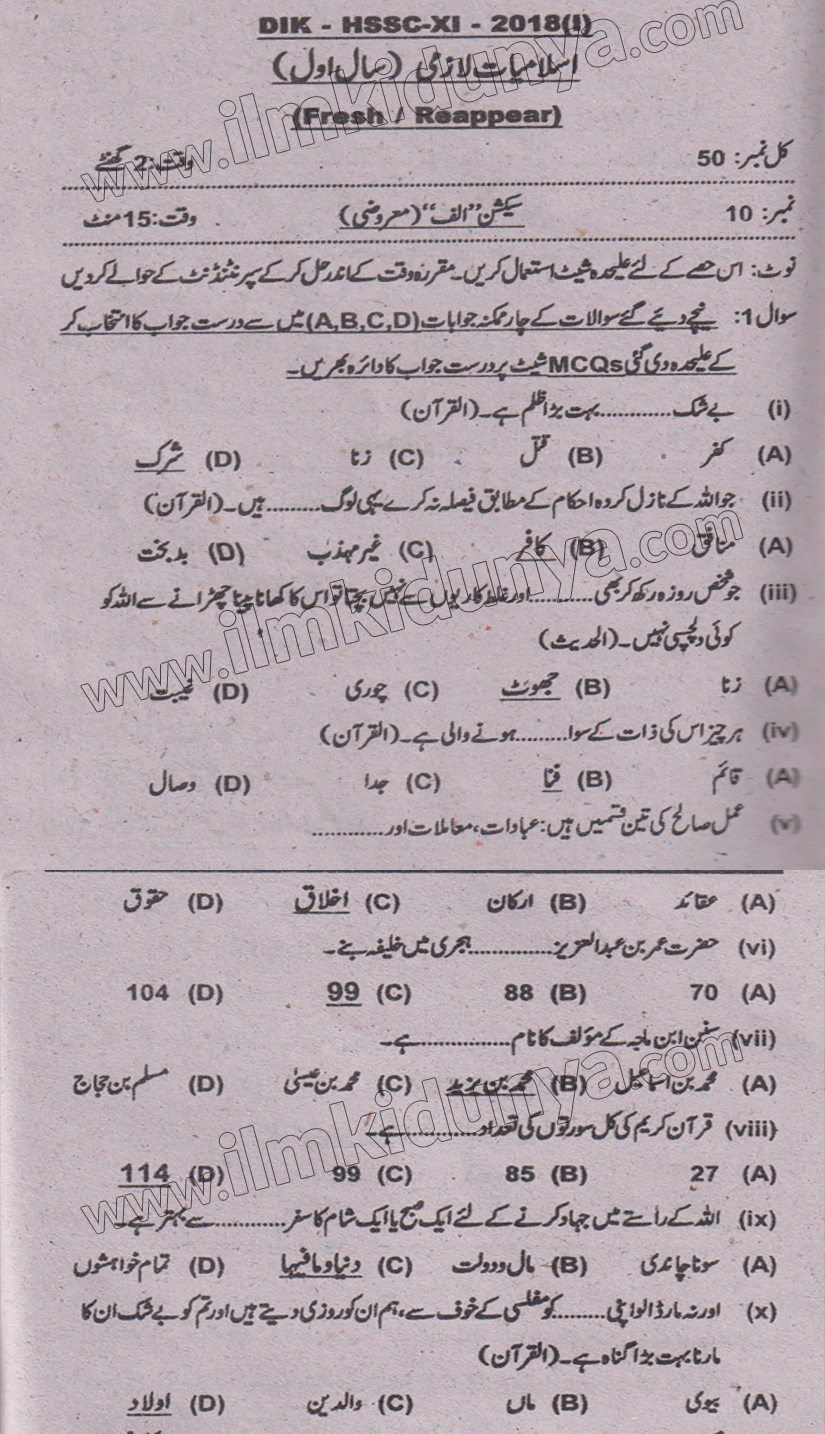 DIK - HSSC-XI - 2018(I)
اسلامیات لازمی (سال اول)
(Fresh / Reappear)
کل نمبر: 50 وقت: 2 گھنٹے
نمبر: 10 سیکشن ”الف“ (معروضی) وقت: 15 منٹ
نوٹ: اس حصے کے لئے علیحدہ شیٹ استعمال کریں۔ مقررہ وقت کے اندر حل کرکے سپرنٹنڈنٹ کے حوالے کردیں
سوال 1: نیچے دیئے گئے سوالات کے چار ممکنہ جوابات (A,B,C,D) میں سے درست جواب کا انتخاب کر
کے علیحدہ دی گئی MCQs شیٹ پر درست جواب کا دائرہ بھریں۔
(i) بے شک ............ بہت بڑا ظلم ہے۔ (القرآن)
(A) کفر (B) قتل (C) زنا (D) شرک
(ii) جو اللہ کے نازل کردہ احکام کے مطابق فیصلہ نہ کرے یہی لوگ ......... ہیں۔ (القرآن)
(A) منافق (B) کافر (C) غیر مہذب (D) بد بخت
(iii) جو شخص روزہ رکھ کر بھی ........... اور غلط کاریوں سے نہیں بچتا تو اس کا کھانا پینا چھڑانے سے اللہ کو
کوئی دلچسپی نہیں۔ (الحدیث)
(A) زنا (B) جھوٹ (C) چوری (D) غیبت
(iv) ہر چیز اس کی ذات کے سوا ......... ہونے والی ہے۔ (القرآن)
(A) قائم (B) فنا (C) جدا (D) وصال
(v) عمل صالح کی تین قسمیں ہیں: عبادات، معاملات اور ............
(A) عقائد (B) ارکان (C) اخلاق (D) حقوق
(vi) حضرت عمر بن عبدالعزیز .............. ہجری میں خلیفہ بنے۔
(A) 70 (B) 88 (C) 99 (D) 104
(vii) سنن ابن ماجہ کے مؤلف کا نام .............. ہے۔
(A) محمد بن اسماعیل (B) محمد بن یزید (C) محمد بن عیسیٰ (D) مسلم بن حجاج
(viii) قرآن کریم کی کل سورتوں کی تعداد ............ ہے۔
(A) 27 (B) 85 (C) 99 (D) 114
(ix) اللہ کے راستے میں جہاد کرنے کے لئے ایک صبح یا ایک شام کا سفر ............ سے بہتر ہے۔
(A) سونا چاندی (B) مال ودولت (C) دنیا وما فیہا (D) تمام خواہشوں
(x) اور نہ مار ڈالو اپنی ......... کو مفلسی کے خوف سے، ہم ان کو روزی دیتے ہیں اور تم کو بے شک ان کا
مارنا بہت بڑا گناہ ہے۔ (القرآن)
(A) بیوی (B) ماں (C) والدین (D) اولاد
www.ilmkidunya.com
www.ilmkidunya.com
www.ilmkidunya.com